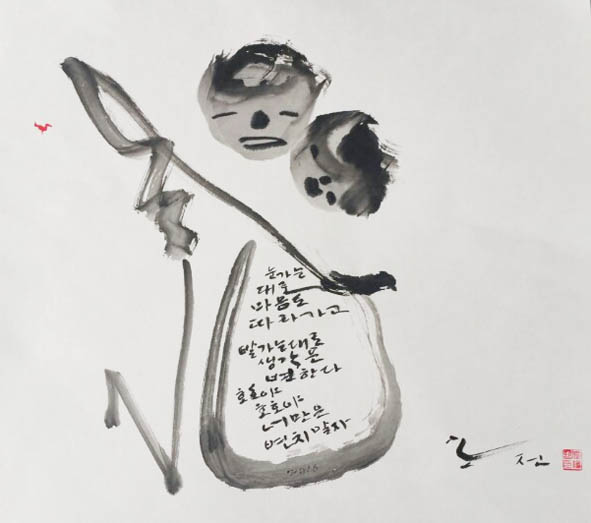 눈가는
대로
마음도
따라가고
발가는대로
생각은
변한다
호호이
호호이
너만은
변치말자